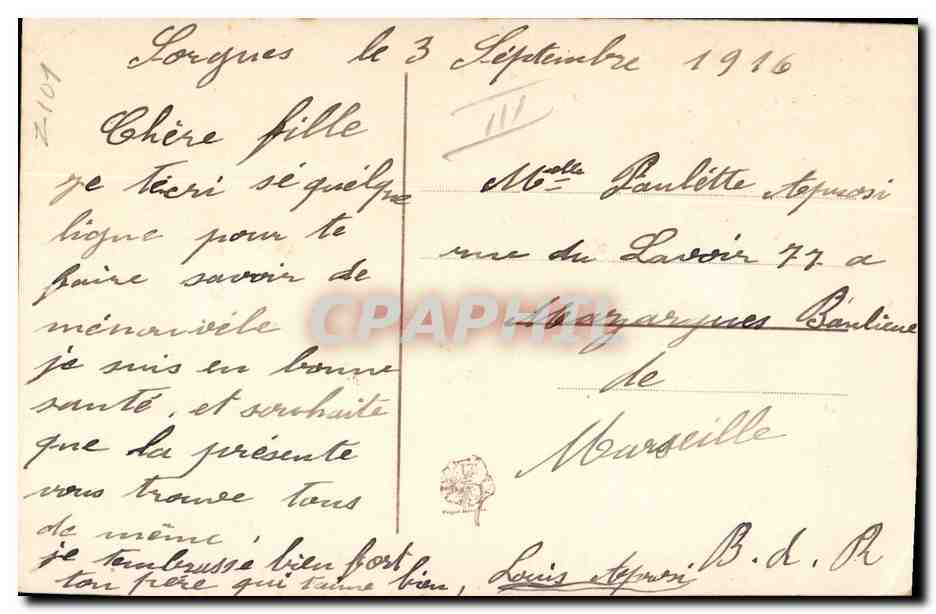 Sorgues le 3 Septembre 1916
2101
III
Chère fille
ge técri sé quélque
ligne pour te
faire savoir de
ménouvéle
je suis en bonne
santé, et souhaite
que la présente
vous trouve tous
de même,
je tembrasse bien fort
ton père qui taime bien, Louis
Melle Paulétte
rue du Lavoir 77 a
Mazargues Banlieue
de
Marseille
B. d. R
CPAPHIL